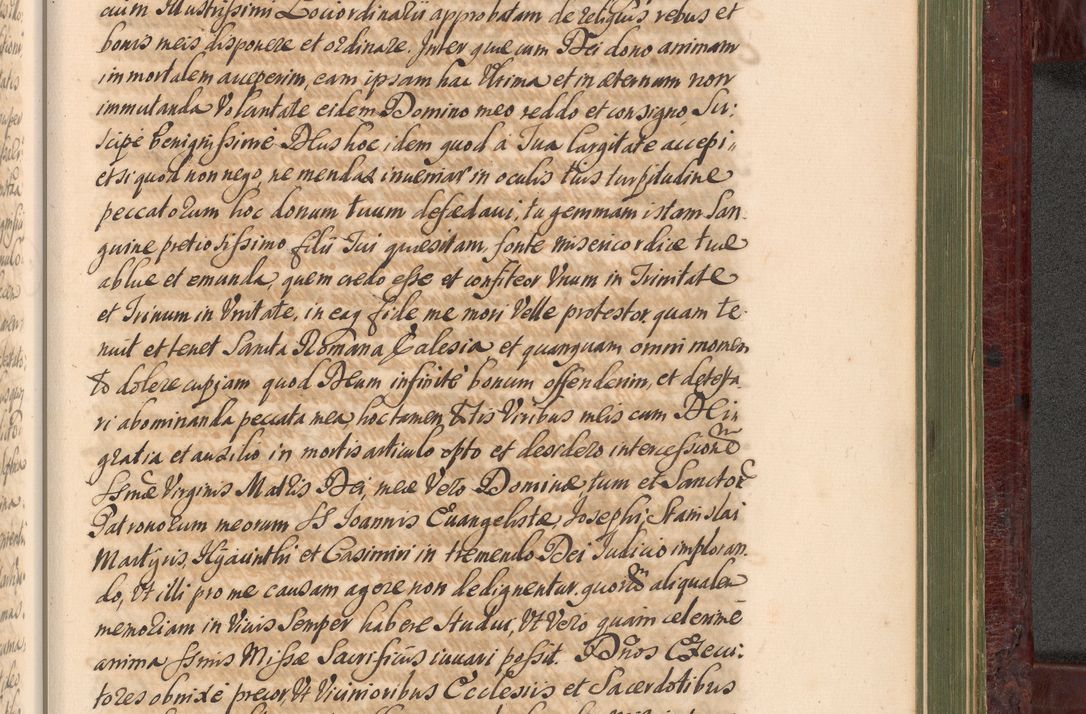 cium Illustrissimi Lociordinarii approbatam de religiis rebus et
bonis meis disponere et ordinare. Inter quæ cum Dei dono animam
immortalem acceperim, eam ipsam hac Ultima et in æternum non
immutanda Voluntate eidem Domino meo reddo et consigno Sus:
scipe benignissimè Deus hoc idem quod à Tua largitate accepi,
et si quod non nego, ne mendax inveniar in oculis tuis turpitudine
peccatorum hoc donum tuum defedavi, tu gemmam istam San
guine pretiosissimo filii Tui quæsitam, fonte misericordiæ tuæ
ablue et emunda, quem credo esse et confiteor Unum in Trinitate
et Trinum in Unitate, in eaq fide me mori Velle protestor quam te
nuit et tenet Sancta Romana Ecclesia, et quanquam omni momen
to dolere cupiam quod Deum infinitè bonum offenderim, et detesta
ri abominanda peccata mea, hoc tamen totis Viribus meis cum Dei
gratia et auxilio in mortis articulo opto et desidero intercessionē
SSmæ Virginis Matris Dei, meæ Vero Dominæ tum et Sanctor
Patronorum meorum SS Joannis Evangelistæ, Josephi, Stanislai
Martyris, Hyacinthi et Casimiri in tremendo Dei Judicio imploran
do, Ut illi pro me causam agere non dedignentur, quorū aliqualem
memoriam in Vivis Semper habere Studui, Ut Vero quam celerrime
anima SSmis Missæ Sacrificiis iuvari possit. Dnos Execu:
tores obnixè precor Ut Vicinioribus Ecclesiis et Sacerdotibus